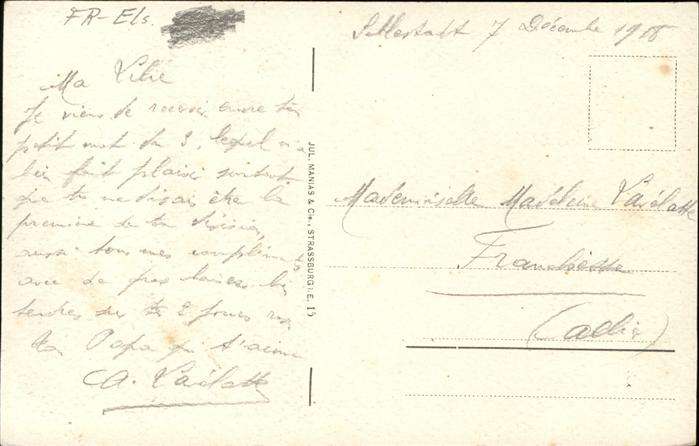 FR-Els.
Schlestadt 7 Décembre 1918
Ma Lilié
Je viens de recevoir encore ton
petit mot du 3, lequel m'a
bien fait plaisir surtout
que tu me disais être la
première de ta division,
aussi tous mes compliments
avec de gros baisers bien
tendres sur tes 2 joues
Ton Papa qui t'aime
A.
JUL. MANIAS & Cie., STRASSBURG I. E. 15
Mademoiselle Madeleine
Franchesse
(Allier)